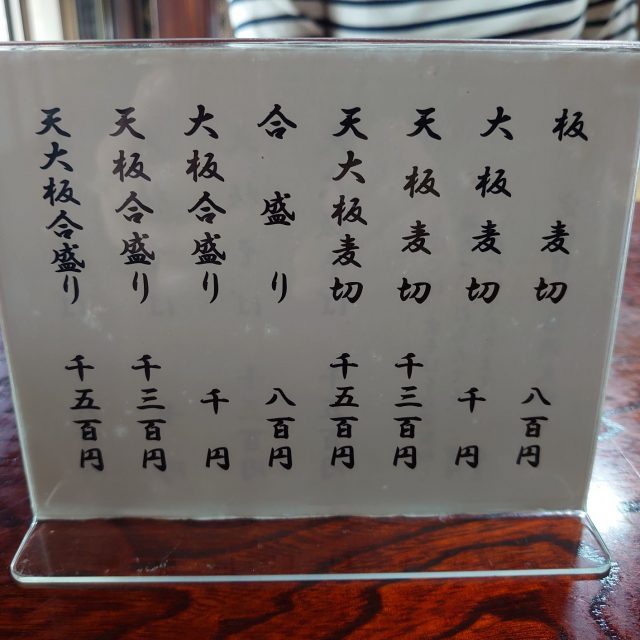 板麦切 八百円
大板麦切 千円
天板麦切 千三百円
天大板麦切 千五百円
合盛り 八百円
大板合盛り 千円
天板合盛り 千三百円
天大板合盛り 千五百円